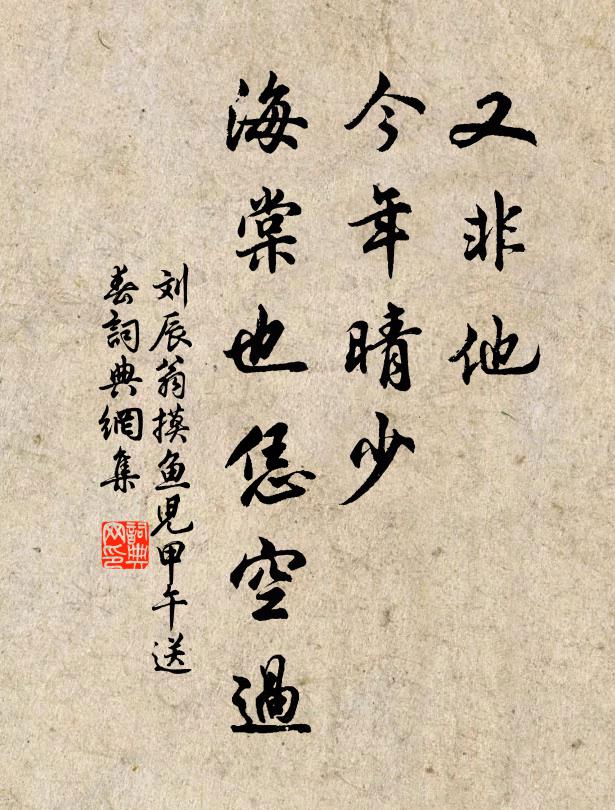 又非他
今年晴少
海棠也恁空過
刘辰翁摸鱼児甲午送
春詞典網集
詞典
网印